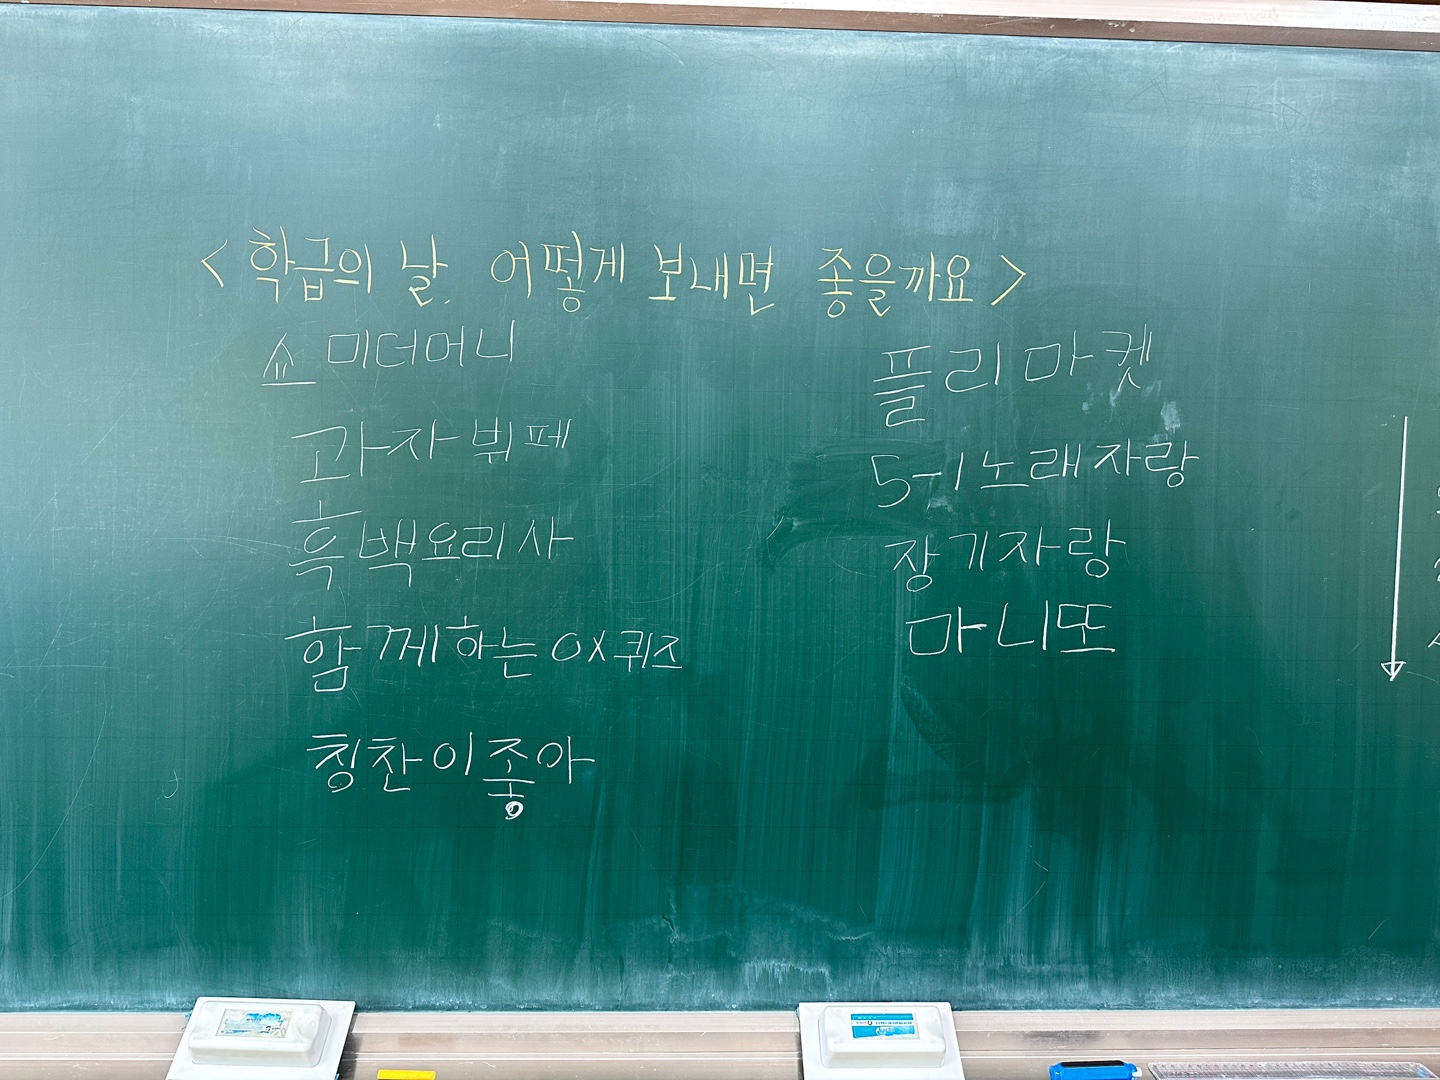 <학급의 날, 어떻게 보내면 좋을까요>
쇼미더머니
과자 뷔페
흑백요리사
함께하는 OX퀴즈
칭찬이좋아
플리마켓
5-1 노래자랑
장기자랑
마니또